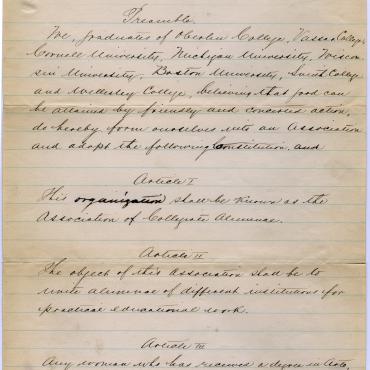 Preamble.
We, graduates of Oberlin College, Vassar College,
Cornell University, Michigan University, Wiscon-
sin University, Boston University, Smith College
and Wellesley College, believing that good can
be attained by friendly and concerted action,
do hereby form ourselves into an Association
and adopt the following Constitution. and
Article I
This organization shall be known as the
Association of Collegiate Alumnae.
Article II
The object of this Association shall be to
unite alumnae of different institutions for
practical educational work.
Article III
Any woman who has received a degree in Arts,